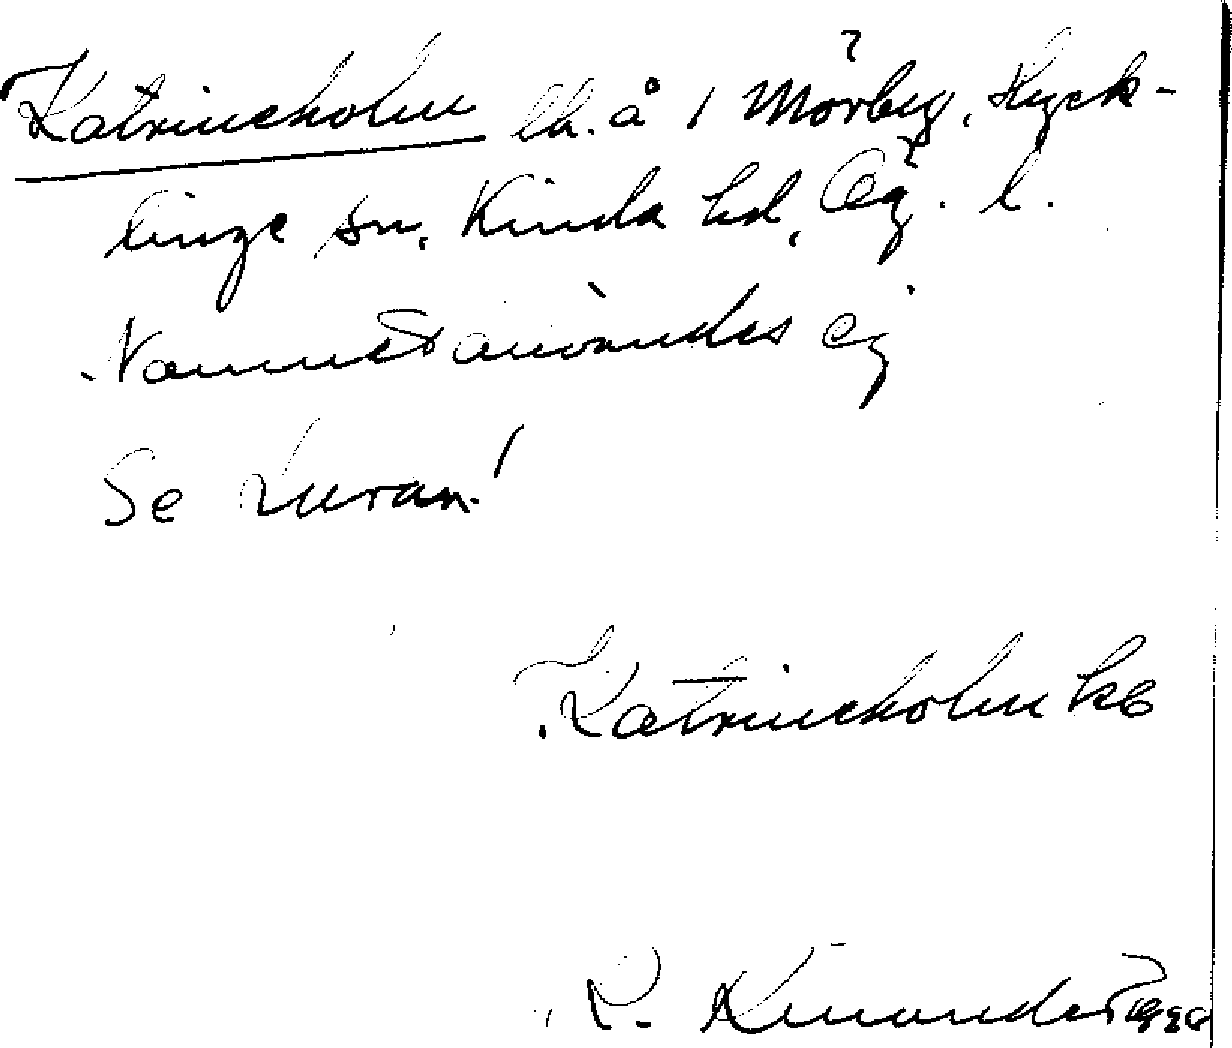 Katrineholm lh. å 1 Mörby, Kyck-
linge sn, Kinda hd, Ög. l.
Namnet användes ej
Se Luran!
Katrineholm
R. Kinander